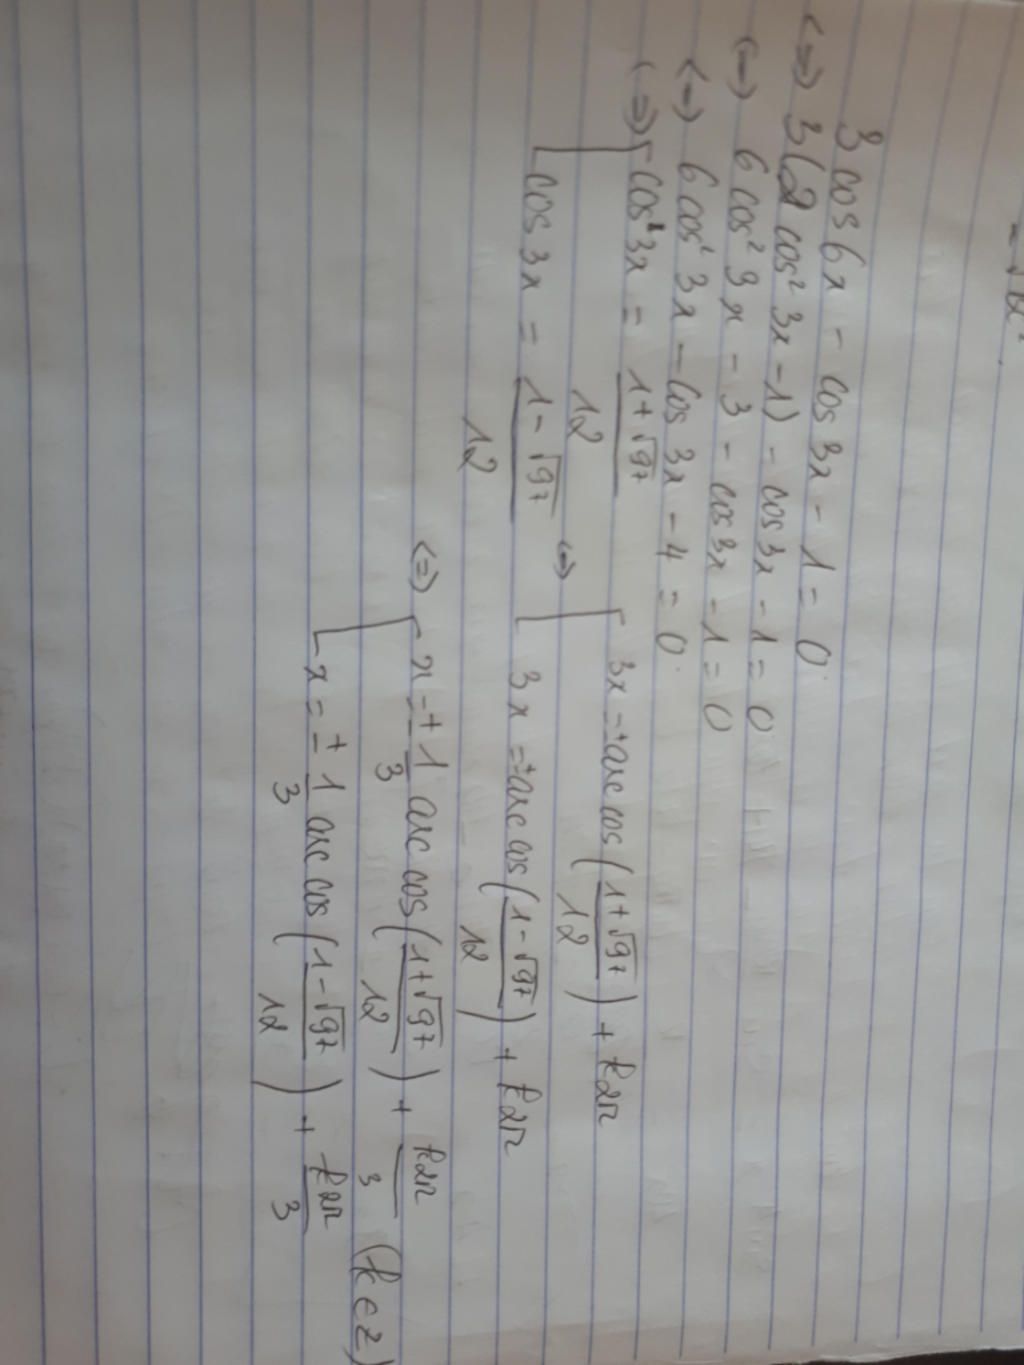 3 cos 6x - cos 3x - 1 = 0
<=> 3(2 cos² 3x - 1) - cos 3x - 1 = 0
<=> 6 cos² 3x - 3 - cos 3x - 1 = 0
<=> 6 cos² 3x - cos 3x - 4 = 0
<=> [ cos 3x = (1 + √97)/12
cos 3x = (1 - √97)/12
<=> [ 3x = ± arc cos ((1 + √97)/12) + k2π
3x = ± arc cos ((1 - √97)/12) + k2π
<=> [ x = ± 1/3 arc cos ((1 + √97)/12) + k2π/3 (k ∈ Z)
x = ± 1/3 arc cos ((1 - √97)/12) + k2π/3